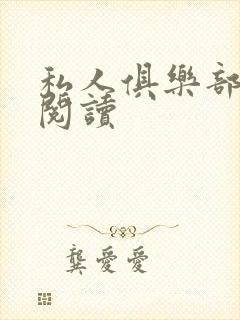 私人俱樂部
閱讀
龔愛愛